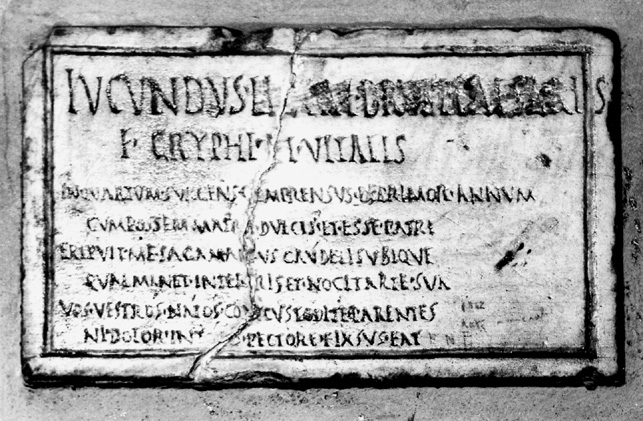 IVCVNDVS
F · GRYPHI · VITALIS
IN QVARTVM · SVRGENS · COMPRENSVS · DEPRIMOR · ANNVM
CVM POSSEM MATRI DVLCIS · ET · ESSE PATRI
ERIPVIT · ME · SAGA MANVS CRVDELIS VBIQVE
MANET · IN TERRIS ET · NOCIT ARTE · SVA
VOS · VESTROS · NATOS CONCVSTODITE PARENTES
NI · DOLOR · IN PECTORE · FIXSVS · EAT